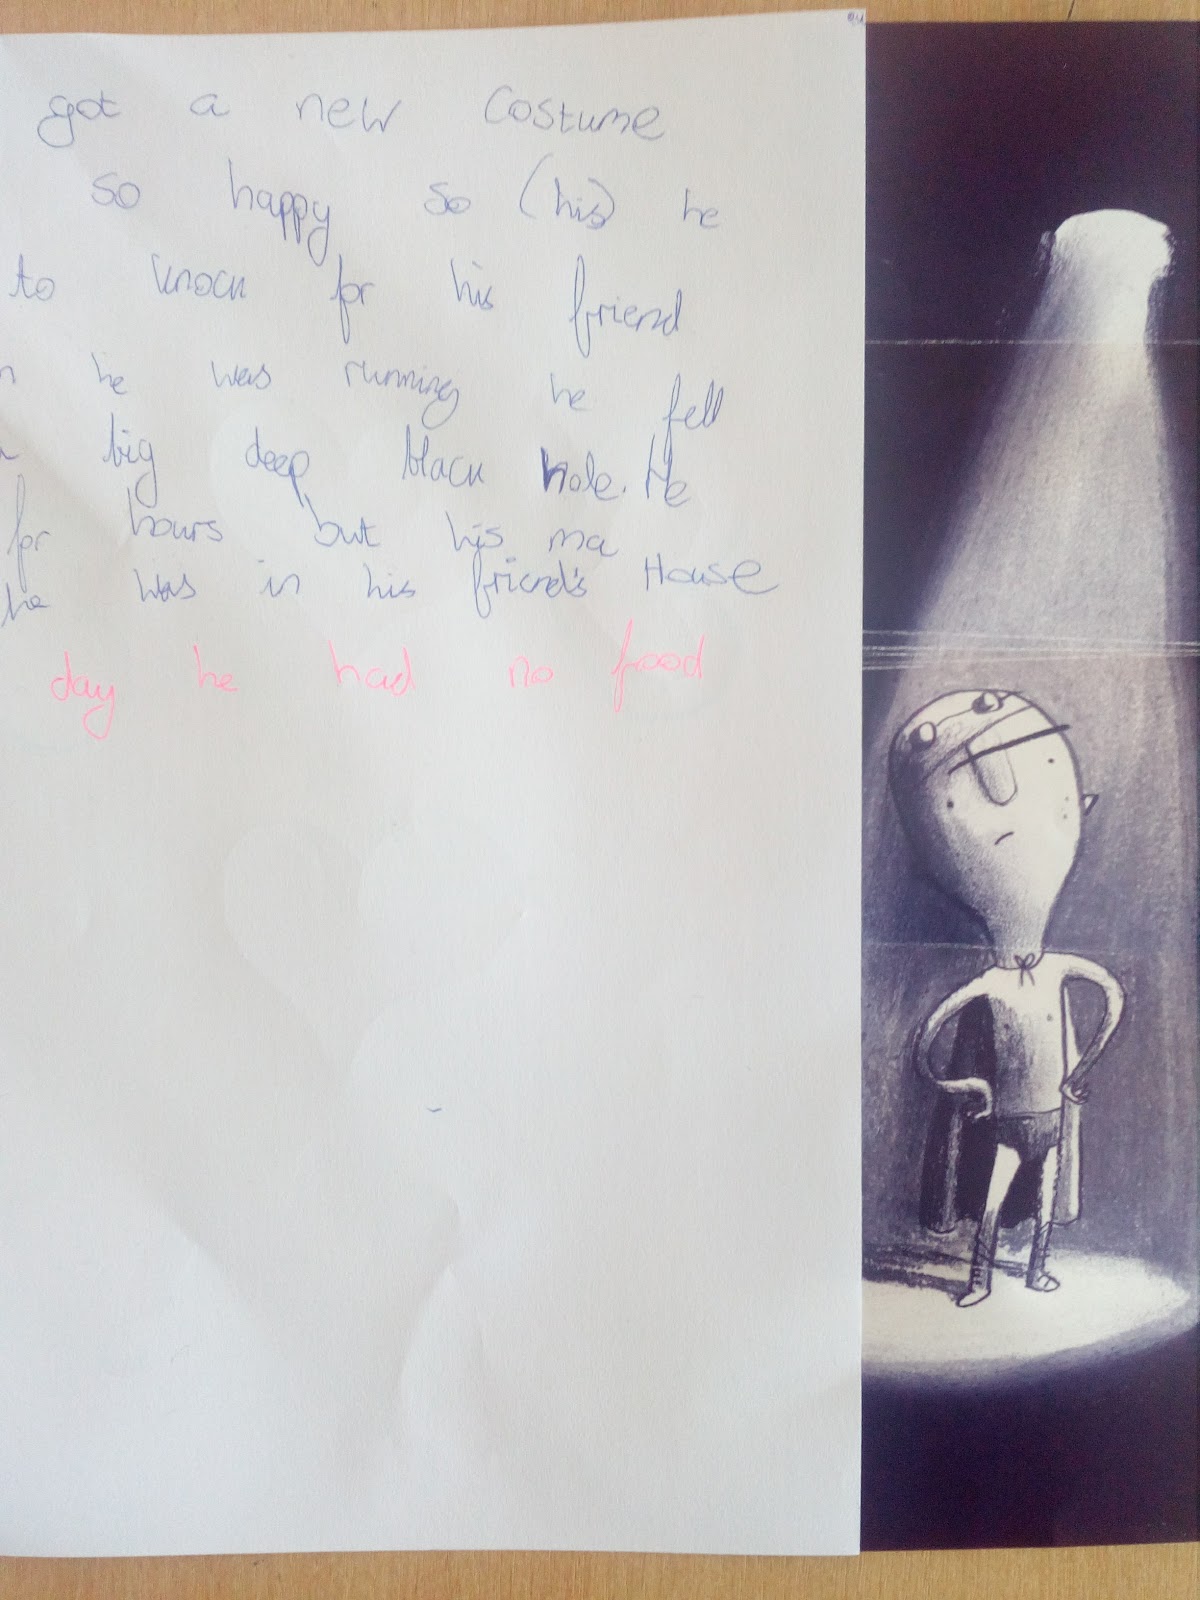 got a new costume
so happy so (his) he
to knock for his friend
he was running he fell
big deep black hole. He
for hours but his ma
he was in his friend's House
day he had no food